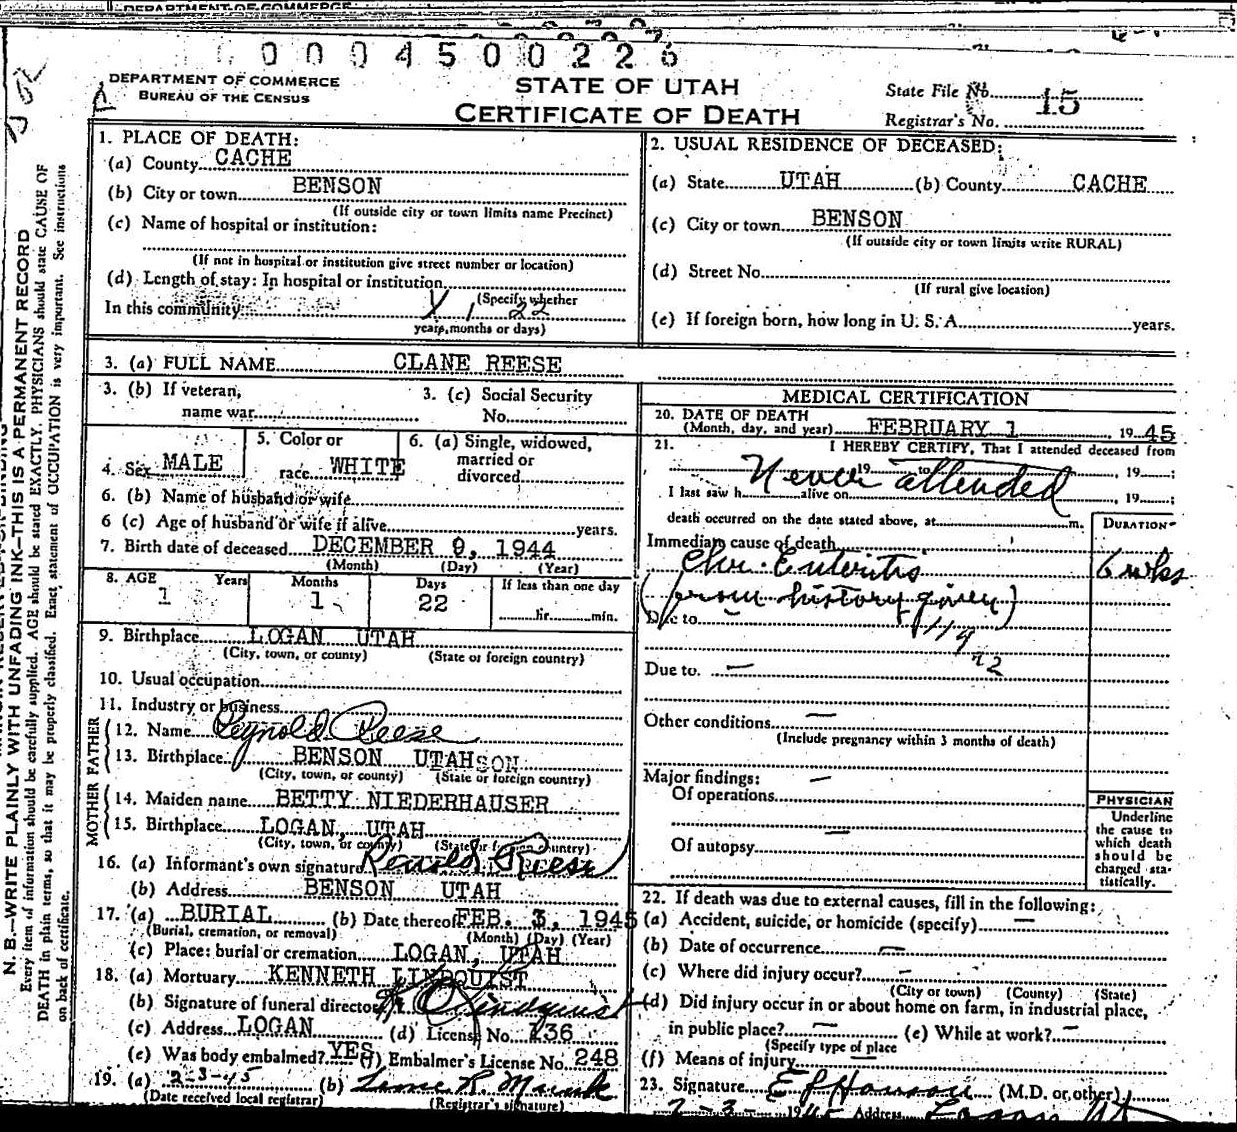 DEPARTMENT OF COMMERCE
0004500226
DEPARTMENT OF COMMERCE
BUREAU OF THE CENSUS
STATE OF UTAH
CERTIFICATE OF DEATH
State File No. 15
Registrar's No.
N. B.—WRITE PLAINLY WITH UNFADING INK—THIS IS A PERMANENT RECORD
Every item of information should be carefully supplied. AGE should be stated EXACTLY. PHYSICIANS should state CAUSE OF
DEATH in plain terms, so that it may be properly classified. Exact statement of OCCUPATION is very important. See instructions
on back of certificate.
1. PLACE OF DEATH:
(a) County CACHE
(b) City or town BENSON
(If outside city or town limits name Precinct)
(c) Name of hospital or institution:
(If not in hospital or institution give street number or location)
(d) Length of stay: In hospital or institution
(Specify whether
In this community 1 22
years, months or days)
2. USUAL RESIDENCE OF DECEASED:
(a) State UTAH (b) County CACHE
(c) City or town BENSON
(If outside city or town limits write RURAL)
(d) Street No.
(If rural give location)
(e) If foreign born, how long in U. S. A. years.
3. (a) FULL NAME CLANE REESE
3. (b) If veteran, 3. (c) Social Security
name war No.
4. Sex MALE
5. Color or
race WHITE
6. (a) Single, widowed,
married or
divorced
6. (b) Name of husband or wife
6 (c) Age of husband or wife if alive years.
7. Birth date of deceased DECEMBER 9, 1944
(Month) (Day) (Year)
8. AGE Years Months Days If less than one day
1 1 22 hr. min.
9. Birthplace LOGAN UTAH
(City, town, or county) (State or foreign country)
10. Usual occupation
11. Industry or business
FATHER
12. Name Reynold Reese
13. Birthplace BENSON UTAH SON
(City, town, or county) (State or foreign country)
MOTHER
14. Maiden name BETTY NIEDERHAUSER
15. Birthplace LOGAN, UTAH
(City, town, or county) (State or foreign country)
16. (a) Informant's own signature Renold Reese
(b) Address BENSON UTAH
17. (a) BURIAL (b) Date thereof FEB. 3, 1945
(Burial, cremation, or removal) (Month) (Day) (Year)
(c) Place: burial or cremation LOGAN, UTAH
18. (a) Mortuary KENNETH LINDQUIST
(b) Signature of funeral director Lindquist
(c) Address LOGAN (d) License No. 136
(e) Was body embalmed? YES (f) Embalmer's License No. 248
19. (a) 2-3-45 (b)
(Date received local registrar) (Registrar's signature)
MEDICAL CERTIFICATION
20. DATE OF DEATH
(Month, day, and year) FEBRUARY 1 1945
21. I HEREBY CERTIFY, That I attended deceased from
19 to 19 ;
Never attended
I last saw h alive on , 19 ;
death occurred on the date stated above, at m.
DURATION
Immediate cause of death
Chr. Enteritis 6 wks
(from history given)
Due to 119
Due to. —
Other conditions —
(Include pregnancy within 3 months of death)
Major findings: —
Of operations
Of autopsy —
PHYSICIAN
Underline
the cause to
which death
should be
charged sta-
tistically.
22. If death was due to external causes, fill in the following:
(a) Accident, suicide, or homicide (specify) —
(b) Date of occurrence —
(c) Where did injury occur? —
(City or town) (County) (State)
(d) Did injury occur in or about home on farm, in industrial place,
in public place? — (e) While at work? —
(Specify type of place
(f) Means of injury —
23. Signature (M.D. or other)
2-3- 1945 Address Logan Ut